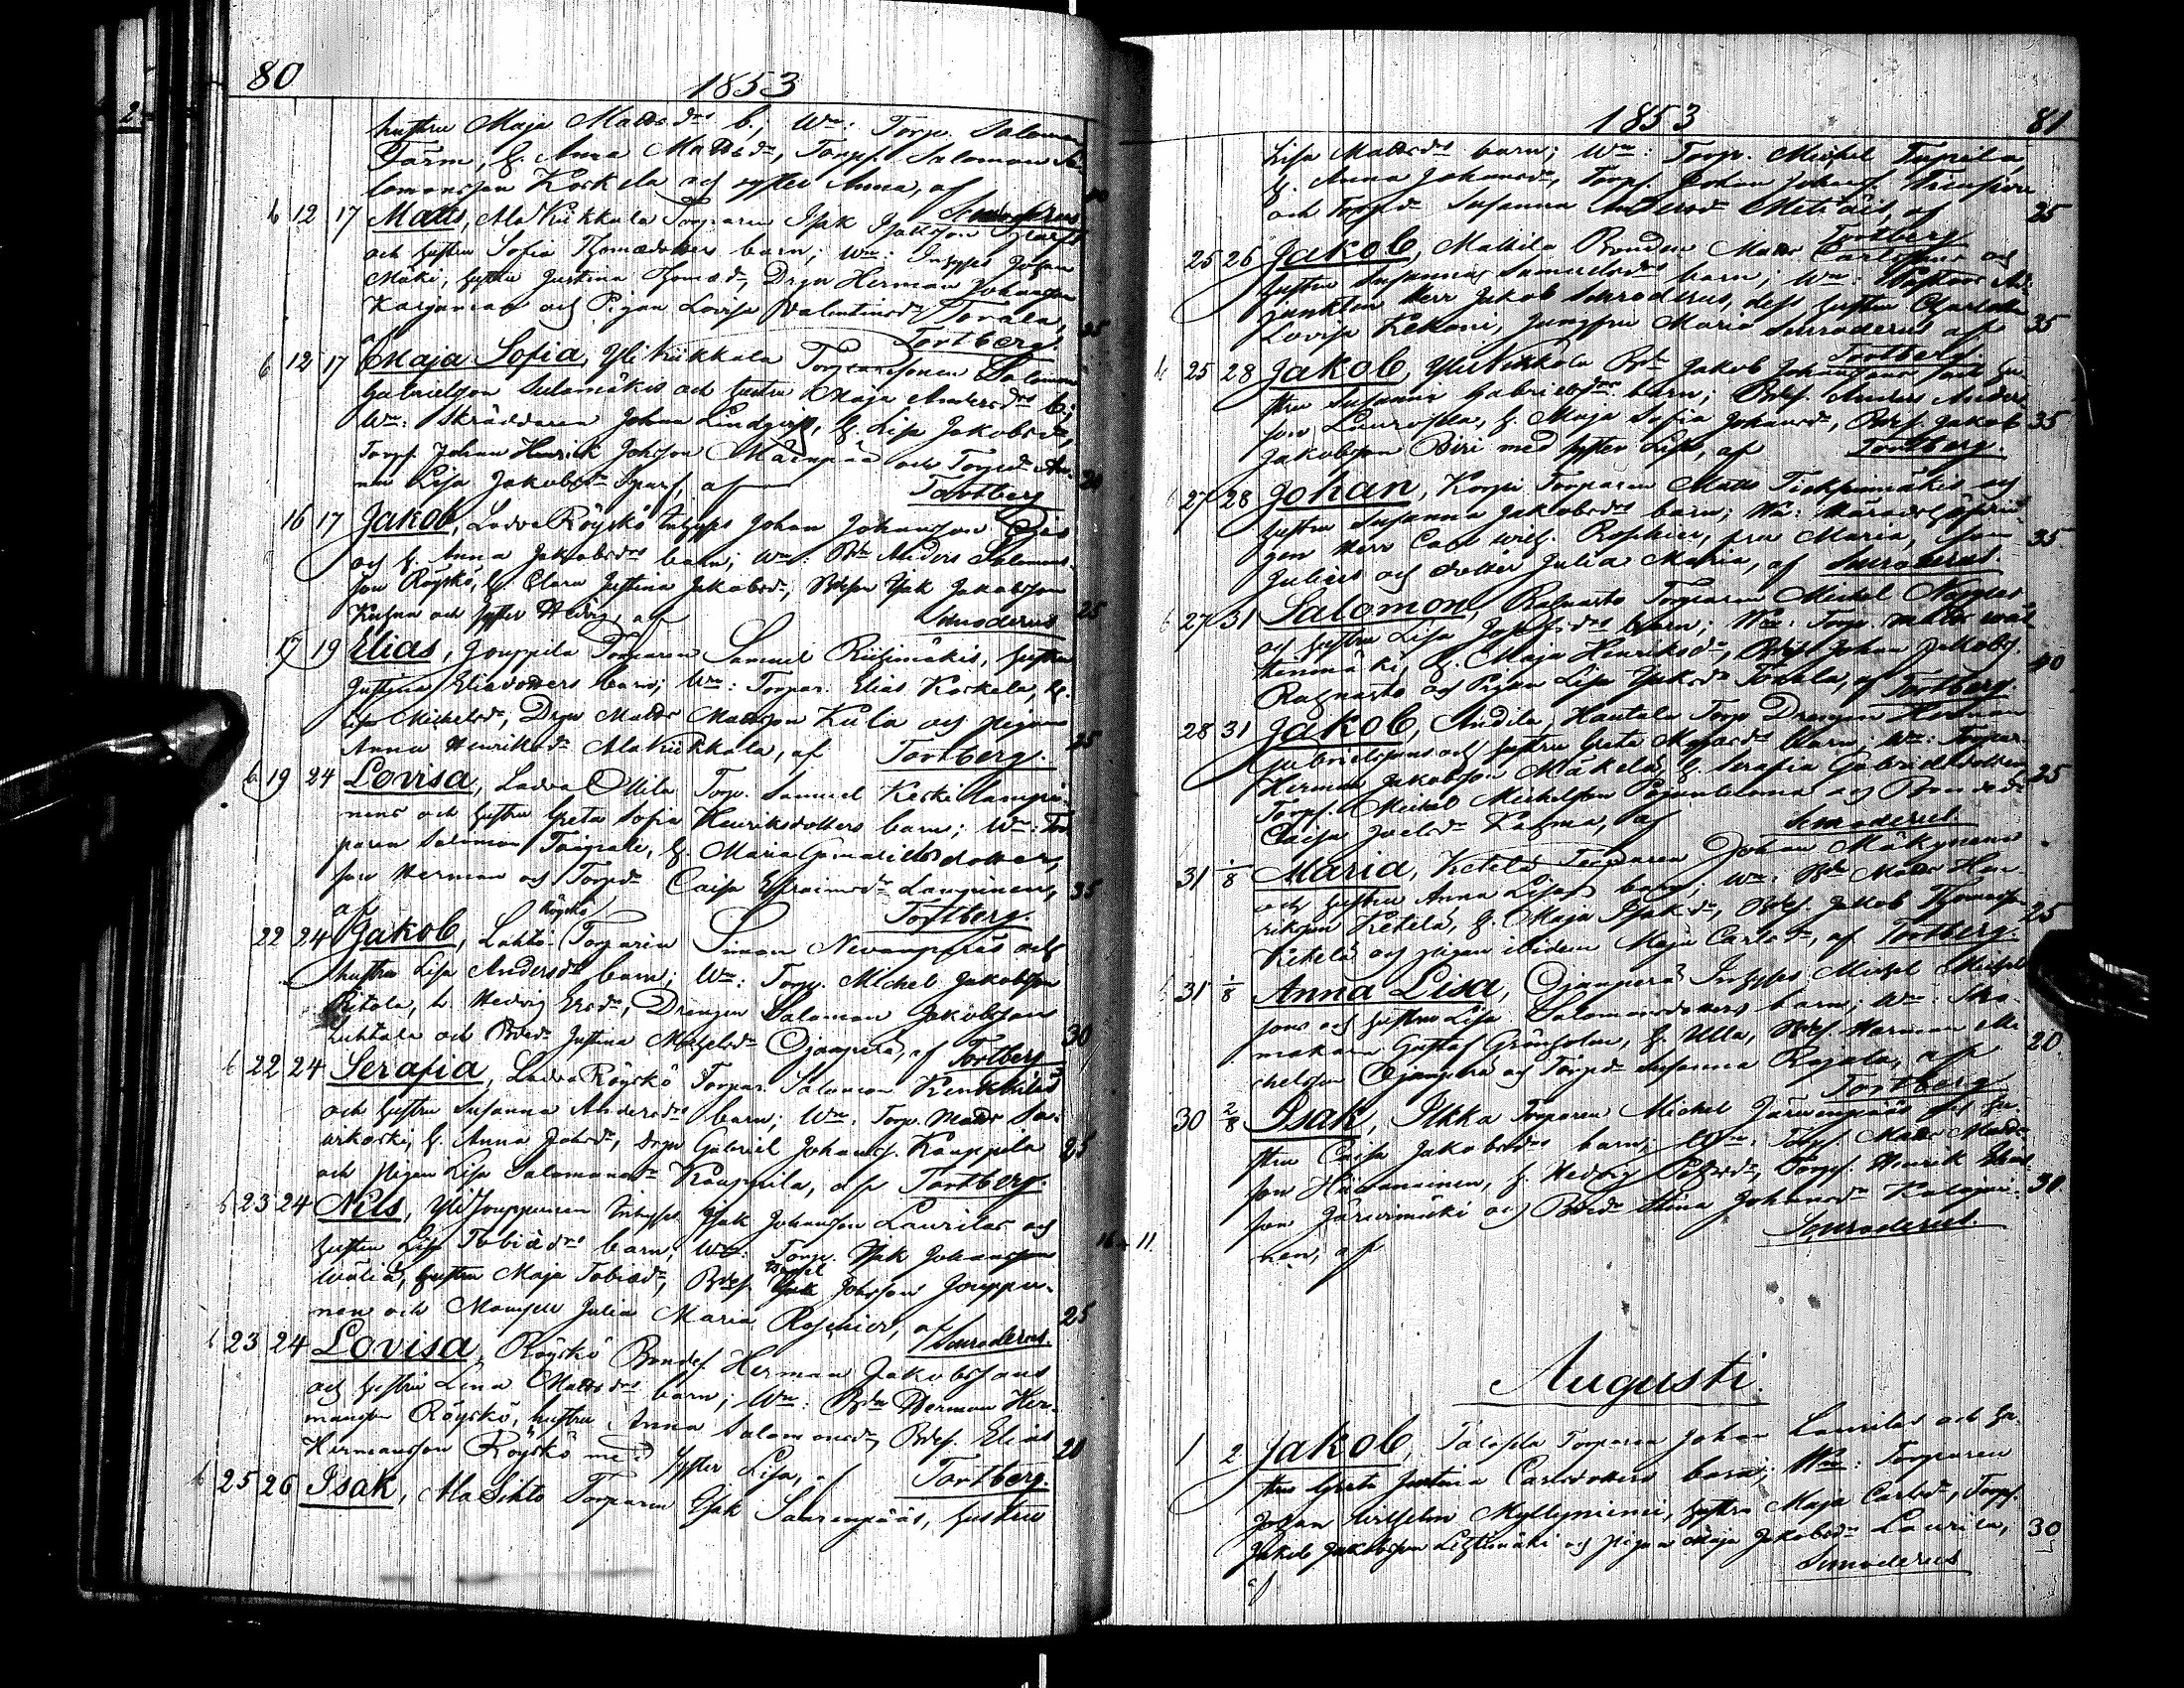 80
1853
hustru Maja Mattsdrs b.; Wn: Torp. Salomon
Färm, h. Anna Mattsdr, Torps. Salomon Sa-
lomonsson Koskela och syster Anna, af 40
6 12 17 Matts, Ala Kiikkala Torparen Isak Isaksson
och hustru Sofia Thomædotters barn; Wn: Inhyses Johan
Mäki, hustru Justina Thomædr, Drgn Herman Johansson
Karjanlah och Pigan Lovisa Valentinsdr Torala, 25
af Tortberg
6 12 17 Maja Sofia, Yli Kiikkala Torparesonen Salomon
Gabrielsson Sulamäkis och hustru Maja Andersdrs b;
Wn: Skräddaren Johan Lindqvist, h. Lisa Jakobsdr,
Torps. Johan Henrik Johsson Mäenpää och Torpdr An-
na Lisa Jakobsdr af 20
Tortberg
16 17 Jakob, Ladva Röyskö Inhyses Johan Johansson
och h. Anna Jakobsdrs barn; Wn: Bdn Anders Salomons-
son Röyskö, h. Clara Justina Jakobsdr, Bdsn Isak Jakobsson
och syster Hedvig, af 25
Snroderus
17 19 Elias, Jouppila Torparen Samuel Riihimäkis, hustru
Justina Eliædotters barn; Wn: Torpar. Elias Koskela, h.
Lisa Michelsdr, Drgn Matts Mattsson Kula och pigan
Anna Henriksdr Ala Kiikkala, af Tortberg. 25
6 19 24 Lovisa, Ladva Ollila Torp. Samuel Keskilampi-
nens och hustru Greta Sofia Henriksdotters barn; Wn: Tor-
paren Salomon h. Maria Gamalielsdotter,
son Herman och Torpdr Caisa Efraimsdr Lampinen, 35
af Tortberg.
Röyskö
22 24 Jakob, Lahti Torparen Simon Nevanpääs och
hustru Lisa Andersdrs barn; Wn: Torp. Michel Jakobsson
h. Hedvig Ersdr, Drängen Salomon Jakobsson
Lehtala och Bdedr Justina Michelsdr Ojanperä, af Tortberg 30
6 22 24 Serafia, Ladva Röyskö Torpar. Salomon
och hustru Susanna Andersdrs barn; Wn: Torp. Matts Sa-
arikoski, h. Anna Johsdr, drgn Gabriel Johanss. Kauppila 25
och pigan Lisa Salomonsdr Kauppila, af Tortberg.
6 23 24 Nils, Yli Jouppinen Inhyses Isak Johansson Laurilas och
hustru Lisa Tobiædrs barn; Wn: Torp. Isak Johansson
Wäliä, hustru Maja Tobiædr, Bdes. Isak Johsson Jouppi-
nen och Mamsell Julia Maria Roschier, af 25
Snroderus.
6 23 24 Lovisa, Röyskö Bondes. Herman Jakobssons
och hustru Lena Mattsdrs barn; Wn: Bdn Herman Her-
mansson Röyskö, hustru Anna Salomonsdr, Bdes. Elias
Hermansson Röyskö med syster Lisa, af 20
Tortberg.
6 25 26 Isak, Ala Sihto Torparen Isak Saarenpääs, hustru
1853
81
Lisa Mattsdrs barn; Wn: Torp. Michel Tupila,
h. Anna Johansdr, Torps. Johan Johanss.
och Torpdr Susanna Andersdr af 25
Tortberg
25 26 Jakob, Mattila Bonden Matts Carlssons och
hustru Susanna Samuelsdrs barn; Wn: Pastors Ad-
junkten Herr Jakob Snroderus, dess hustru Charlotta
Lovisa Kekoni, Jungfru Maria Snroderus af 35
Tortberg.
6 25 28 Jakob, Yli Kikkala Bdn Jakob Johanssons och hu-
stru Susanna Gabrielsdrs barn; Bdes. Anders Anders-
son h. Maja Sofia Johansdr, Bdes. Jakob 35
Jakobsson Piri med syster Lisa, af Tortberg.
6 27 28 Johan, Korpi Torparen Matts och
hustru Susanna Jakobsdrs barn; Wn: Häradshöfdin-
gen Herr Carl Wilh. Roschier, fru Maria, son 35
Julius och dotter Julia Maria, af Snroderus
6 27 31 Salomon, Rahnasto Torparen Michel
och hustru Lisa Josefsdrs barn; Wn: Torp. Matts
h. Maja Henriksdr, Bdes. Johan Jakobs. 40
Rahnasto och Pigan Lisa Isaksdr Tokola, af Tortberg
28 31 Jakob, Andila, Hautala Torp Drengen Herman
Gabrielssons och hustru Greta barn; Wn: Torpar.
Herman Jakobsson Mäkelä, h. Serafia Gabrielsdotter 25
Torps. Michel Michelsson och Bondedr
Caisa Joelsdr af
Snroderus
31 1/8 Maria, Ketelä Torparen Johan Mäkynens
och hustru Anna Lisas barn; Wn: Bdn Matts Hen-
riksson Ketelä, h. Maja Isaksdr, Bdes. Jakob Thomasson 25
Ketelä och pigan ibidem Maja Carlsdr, af Tortberg.
6 31 1/8 Anna Lisa, Ojanperä Inhyses Michel Michel-
sons och hustru Lisa Salomonsdotters barn; Wn: Sko-
makaren Gustaf Grönholm, h. Ulla, Bdes. Herman Mi- 20
chelsson Ojanperä och Torpdr Susanna Rajala, af
Tortberg
30 2/8 Isak, Ilkka Torparen Michel Järvenpääs och hu-
stru Caisa Jakobsdrs barn; Wn: Torps. Matts Matts-
son h. Hedvig Torps. Henrik 30
son Järvimäki och Bdedr Stina Johansdr Kalajai-
nen, af Snroderus.
16 11.
Augusti.
1 2 Jakob, Torparen Johan Laurilas och hu-
strus Greta Justina Carlsdotters barn; Wn: Torparen
Johan Wilhelm Myllyniemi, hustru Maja Carlsdr, Torps.
Jakob Jakobsson och pigan Maja Jakobsdr Laurila, 30
af Snroderus